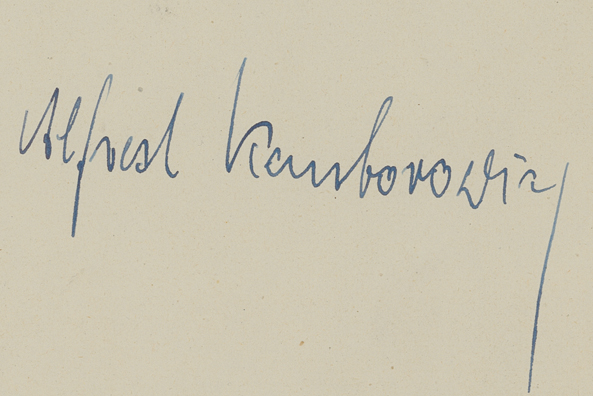 Alfred Kantorowicz